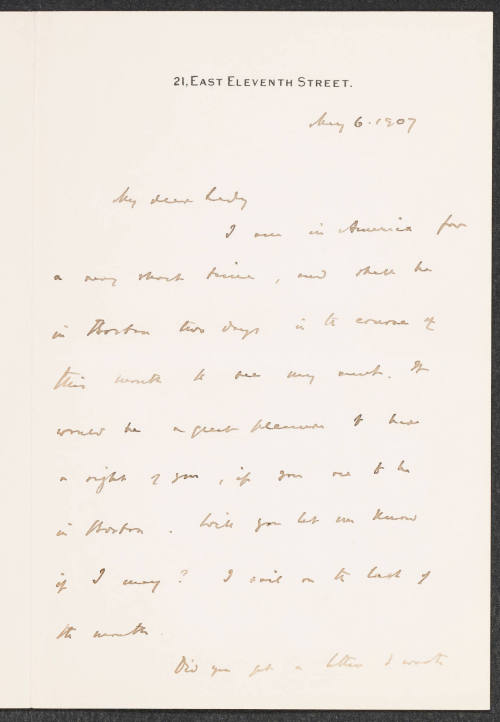 21, EAST ELEVENTH STREET.
May 6. 1907
My dear Lady
I am in America for
a very short time, and shall be
in Boston two days in the course of
this month to see my aunt. It
would be a great pleasure to have
a sight of you, if you are to be
in Boston. Will you let me know
if I may? I sail on the last of
the month.
Did you get a letter I wrote